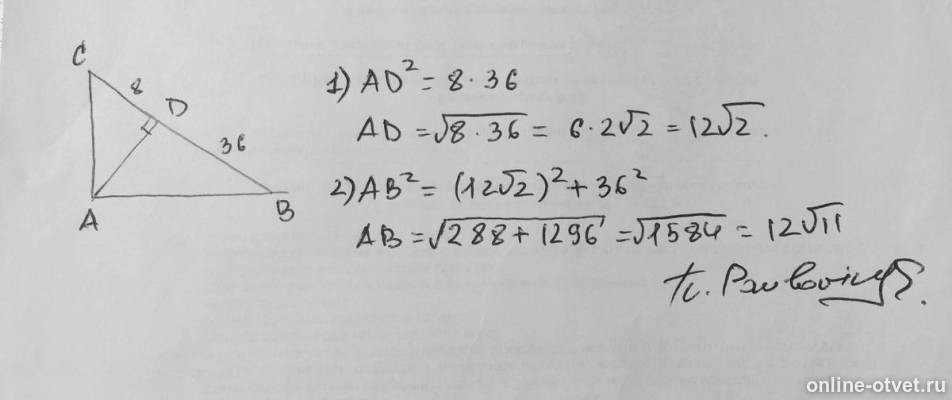 C
8
D
36
A
B
1) AD² = 8 · 36
AD = √(8 · 36) = 6 · 2√2 = 12√2.
2) AB² = (12√2)² + 36²
AB = √(288 + 1296) = √1584 = 12√11
online-otvet.ru